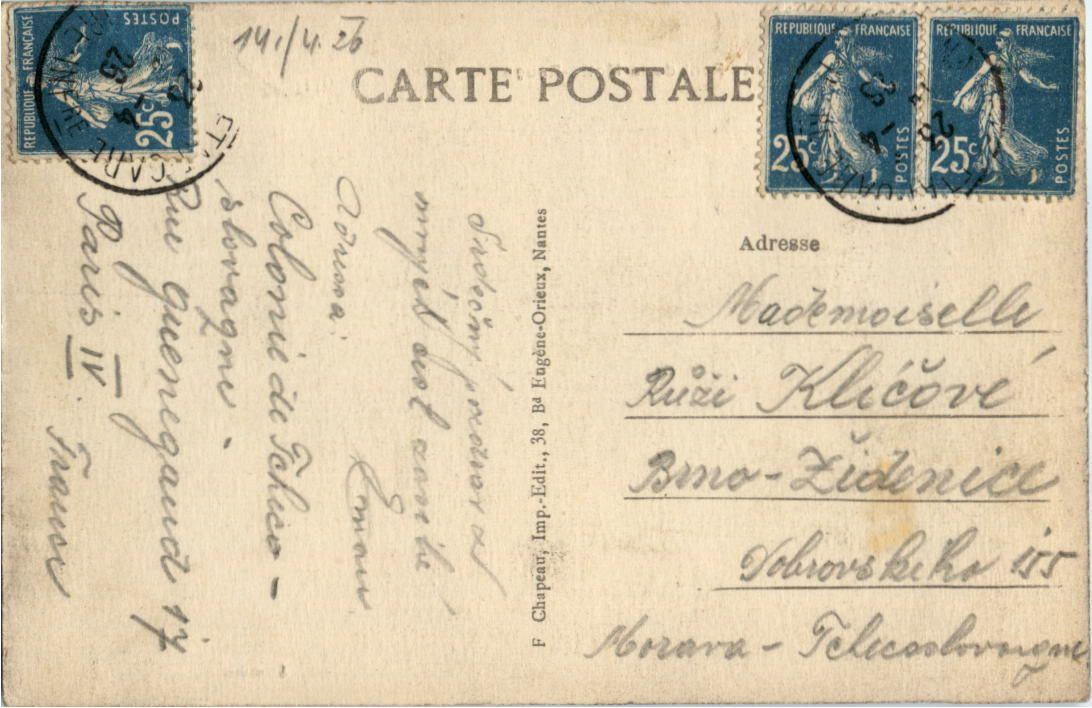 14./4.26
CARTE POSTALE
REPUBLIQUE FRANÇAISE
POSTES
25c
REPUBLIQUE FRANÇAISE
25c
POSTES
REPUBLIQUE FRANÇAISE
25c
POSTES
Srdečný pozdrav
Eman
Adressa:
Colonie de Tcheco-
slovaquie -
Rue Guenegaud 17
Paris IV
France
F Chapeau, Imp.-Edit., 38, Bd Eugène-Orieux, Nantes
Adresse
Mademoiselle
Růži Klíčové
Brno-Židenice
Dobrovského 155
Morava - Tchecoslovaquie